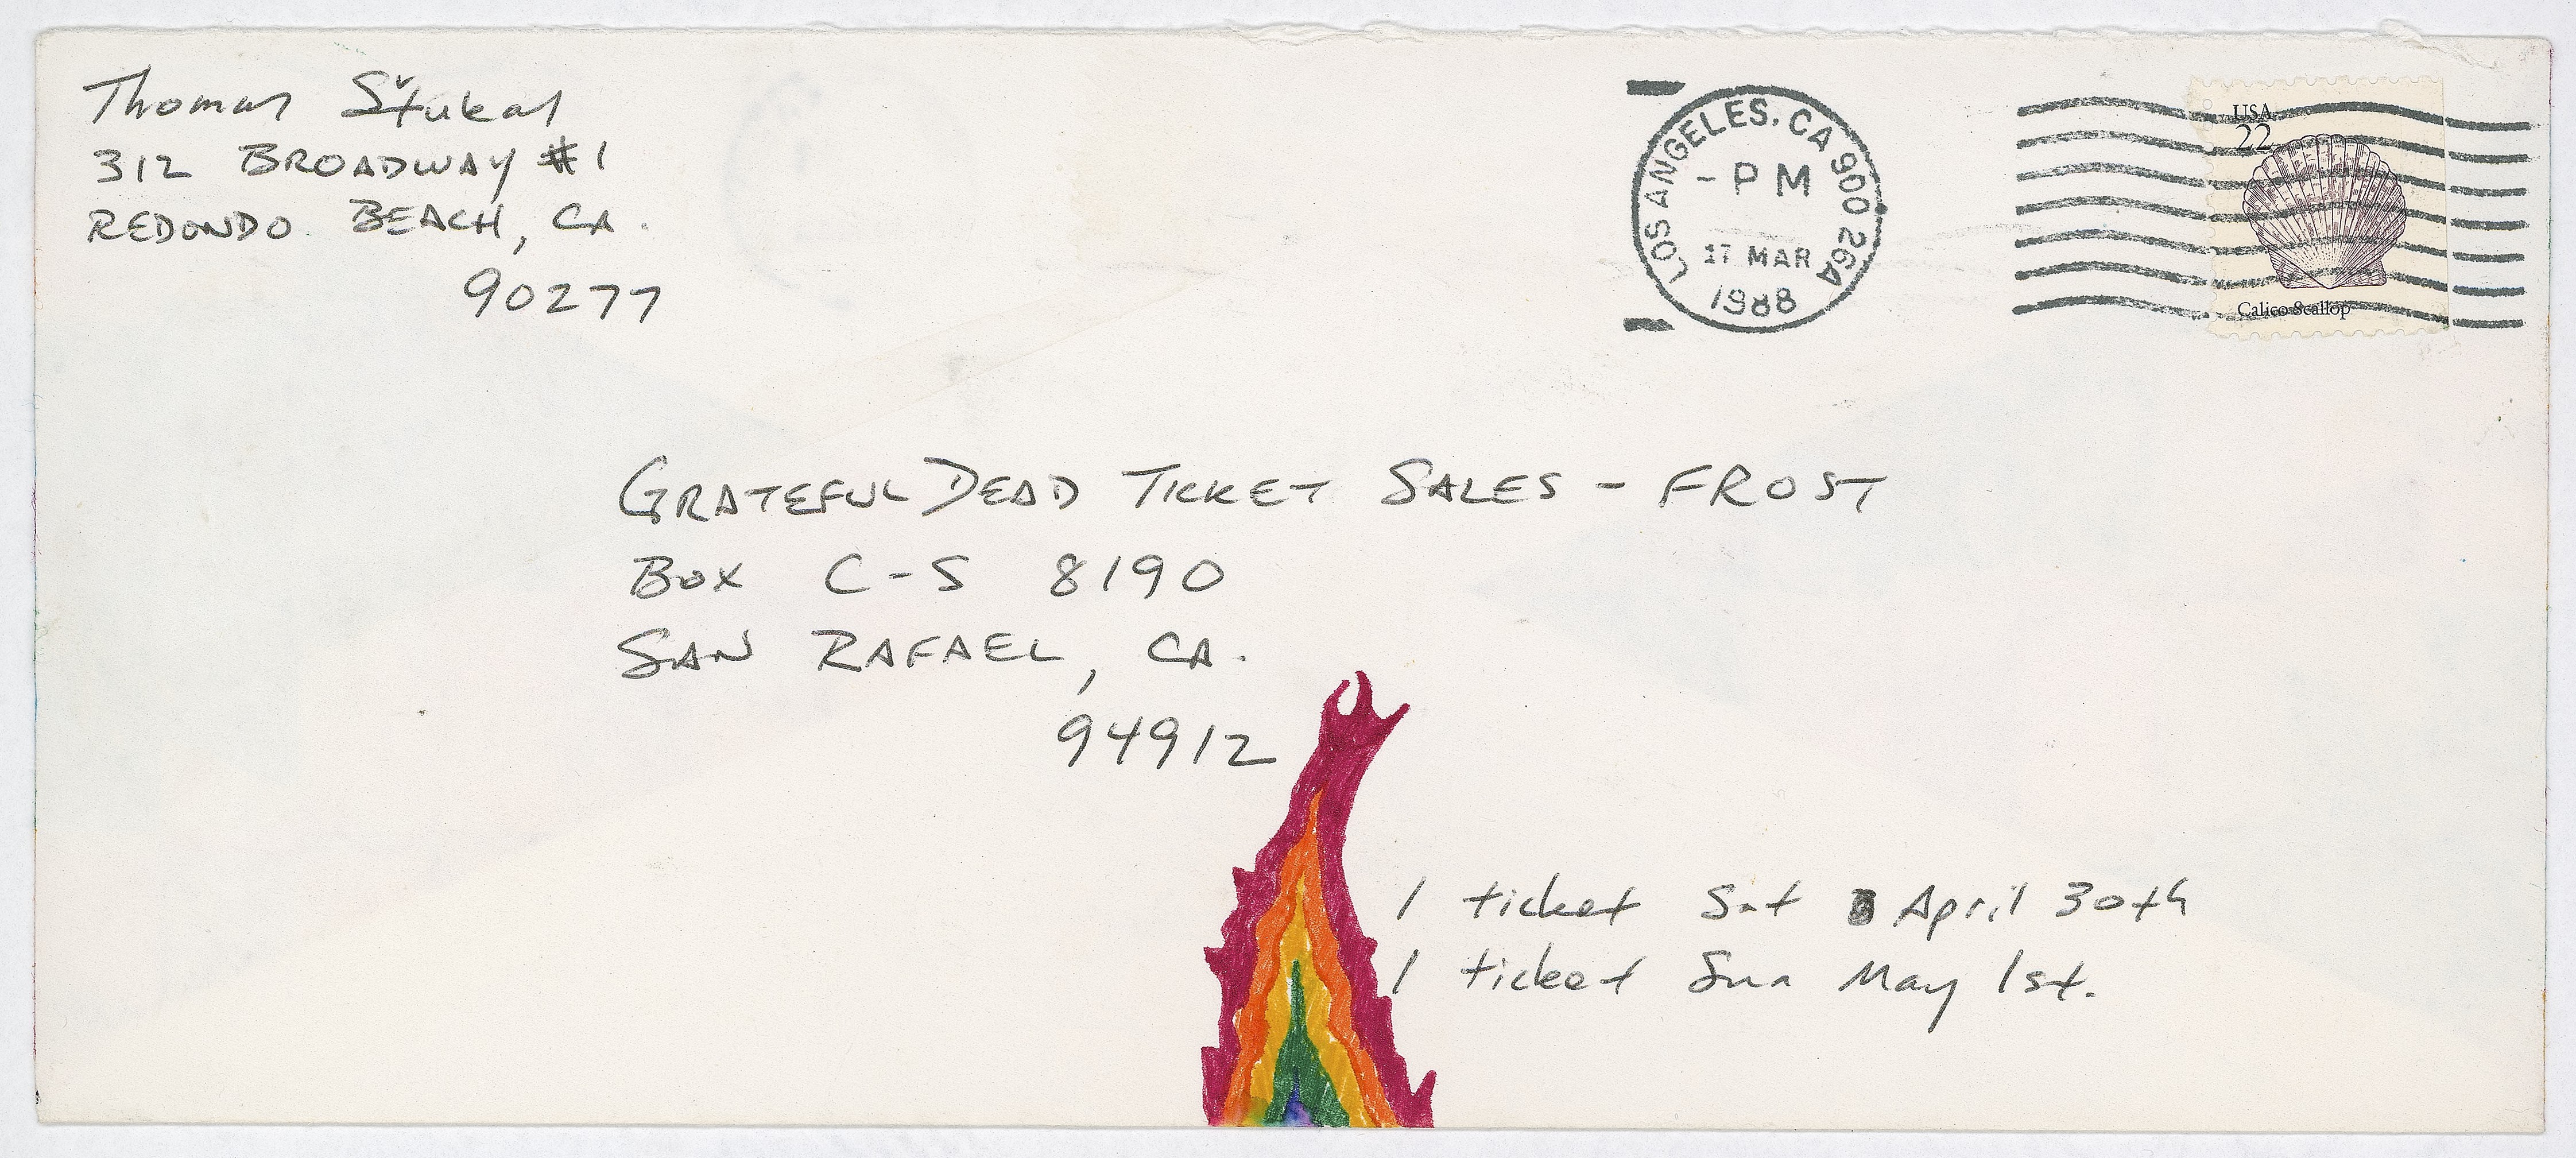 Thomas Štukas
312 BROADWAY #1
REDONDO BEACH, CA.
90277
LOS ANGELES, CA 900 26A
- PM
17 MAR
1988
USA
22
Calico Scallop
GRATEFUL DEAD TICKET SALES - FROST
BOX C-S 8190
SAN RAFAEL, CA.
94912
1 ticket Sat April 30th
1 ticket Sun May 1st.